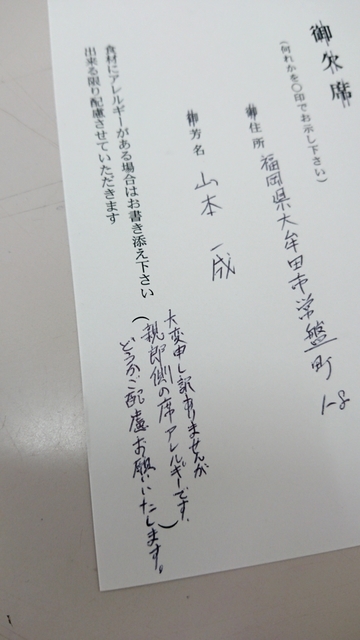 御欠席
(何れかを○印でお示し下さい)
御住所 福岡県大牟田市常盤町 1-8
御芳名 山本 一成
食材にアレルギーがある場合はお書き添え下さい
出来る限り配慮させていただきます
大変申し訳ありませんが
(親郎側の席アレルギーです。)
どうかご配慮お願いいたします。